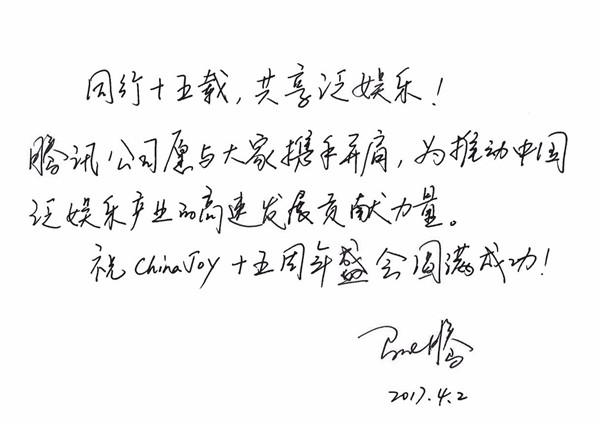 同行十五载，共享泛娱乐！
腾讯公司愿与大家携手并肩，为推动中国
泛娱乐产业的高速发展贡献力量。
祝ChinaJoy十五周年盛会圆满成功！
2017.4.2